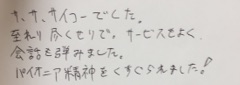 サ、サ、サイコーでした。
至れり尽くせりで。サービスもよく
会話も弾みました。
パイオニア精神をくすぐられました!